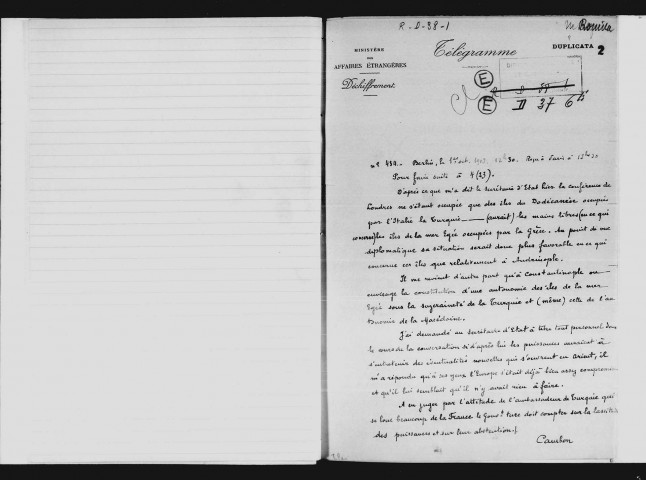 R-D-38-1
M. Romieu
MINISTÈRE
DES
AFFAIRES ÉTRANGÈRES
Télégramme
DUPLICATA
2
Déchiffrement.
E
E
D 37 6
N° 434. - Berlin, le 1er oct. 1913, 12h 30. Reçu à Paris à
Pour faire suite à 4(33).
D'après ce que m'a dit le secrétaire d'Etat hier la conférence de
Londres ne s'étant occupée que des îles du Dodécanèse occupées
par l'Italie la Turquie (aurait) les mains libres (en ce qui
concerne) les îles de la mer Egée occupées par la Grèce. Au point de vue
diplomatique sa situation serait donc plus favorable en ce qui
concerne ces îles que relativement à Andrinople.
Il me revient d'autre part qu'à Constantinople on
envisage la constitution d'une autonomie des îles de la mer
Egée sous la suzeraineté de la Turquie et (même) celle de l'au
tonomie de la Macédoine.
J'ai demandé au secrétaire d'Etat à titre tout personnel dans
le cours de la conversation si d'après lui les puissances auraient à
s'entretenir des éventualités nouvelles qui s'ouvrent en Orient, il
m'a répondu qu'à ses yeux l'Europe s'était déjà bien assez compromise
et qu'il lui semblait qu'il n'y avait rien à faire.
A en juger par l'attitude de l'ambassadeur de Turquie qui
se loue beaucoup de la France le Gouvt turc doit compter sur la lassitude
des puissances et sur leur abstention.
Cambon